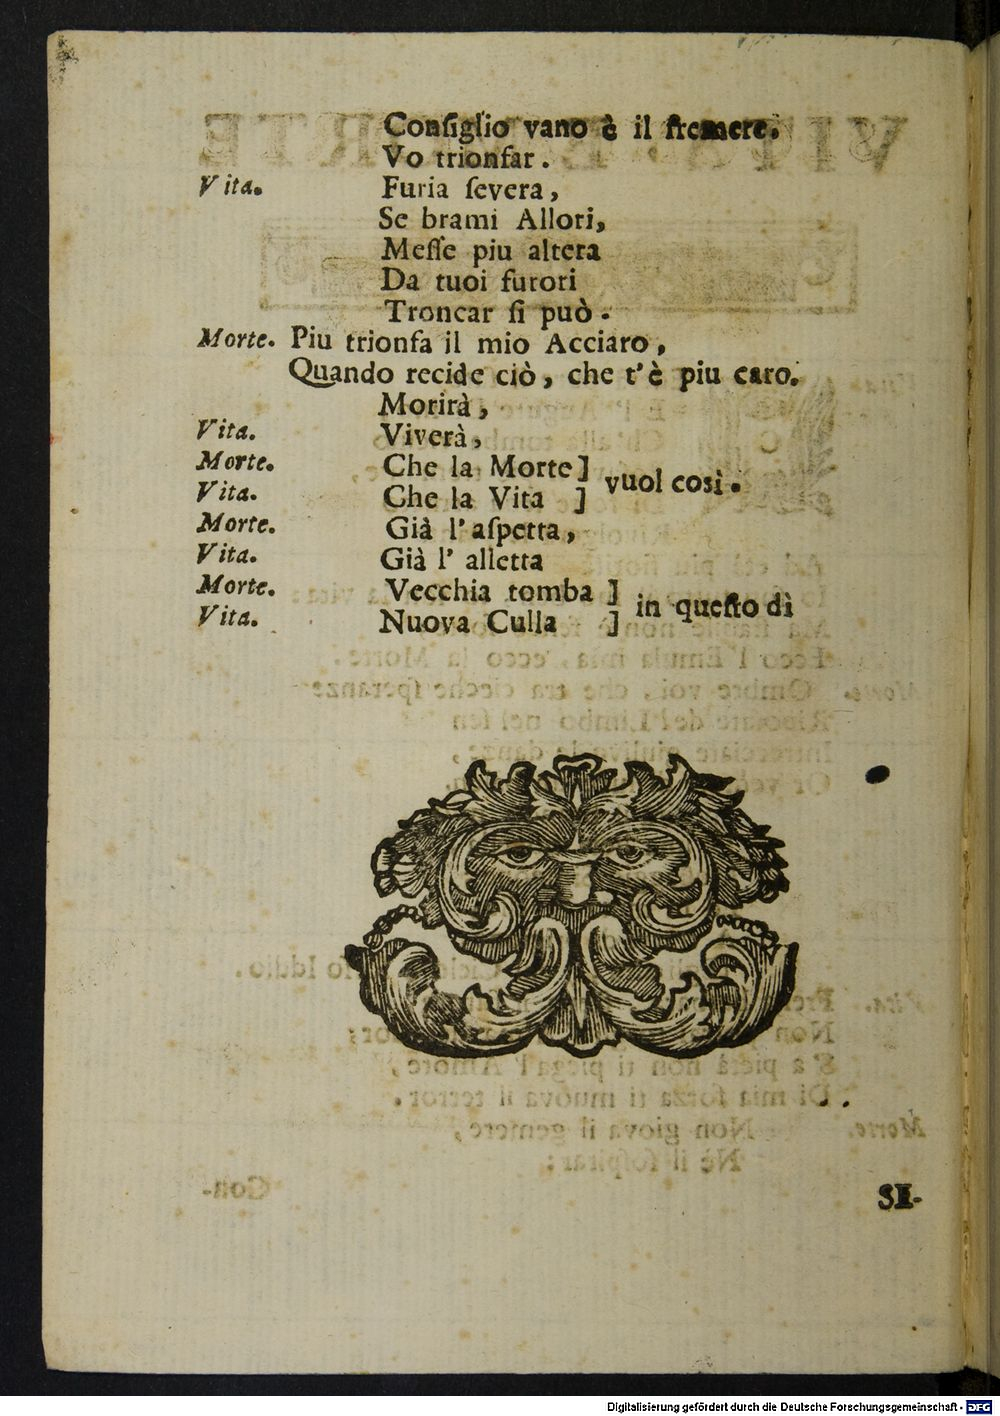 Conſiglio vano è il fremere.
Vo trionfar.
Vita. Furia ſevera,
Se brami Allori,
Meſſe piu altera
Da tuoi furori
Troncar ſi può.
Morte. Piu trionfa il mio Acciaro,
Quando recide ciò, che t'è piu caro.
Morirà,
Vita. Viverà,
Morte. Che la Morte] vuol così.
Vita. Che la Vita ]
Morte. Già l' aſpetta,
Vita. Già l' alletta
Morte. Vecchia tomba ] in queſto dì
Vita. Nuova Culla ]
SI-
Digitalisierung gefördert durch die Deutsche Forschungsgemeinschaft - DFG